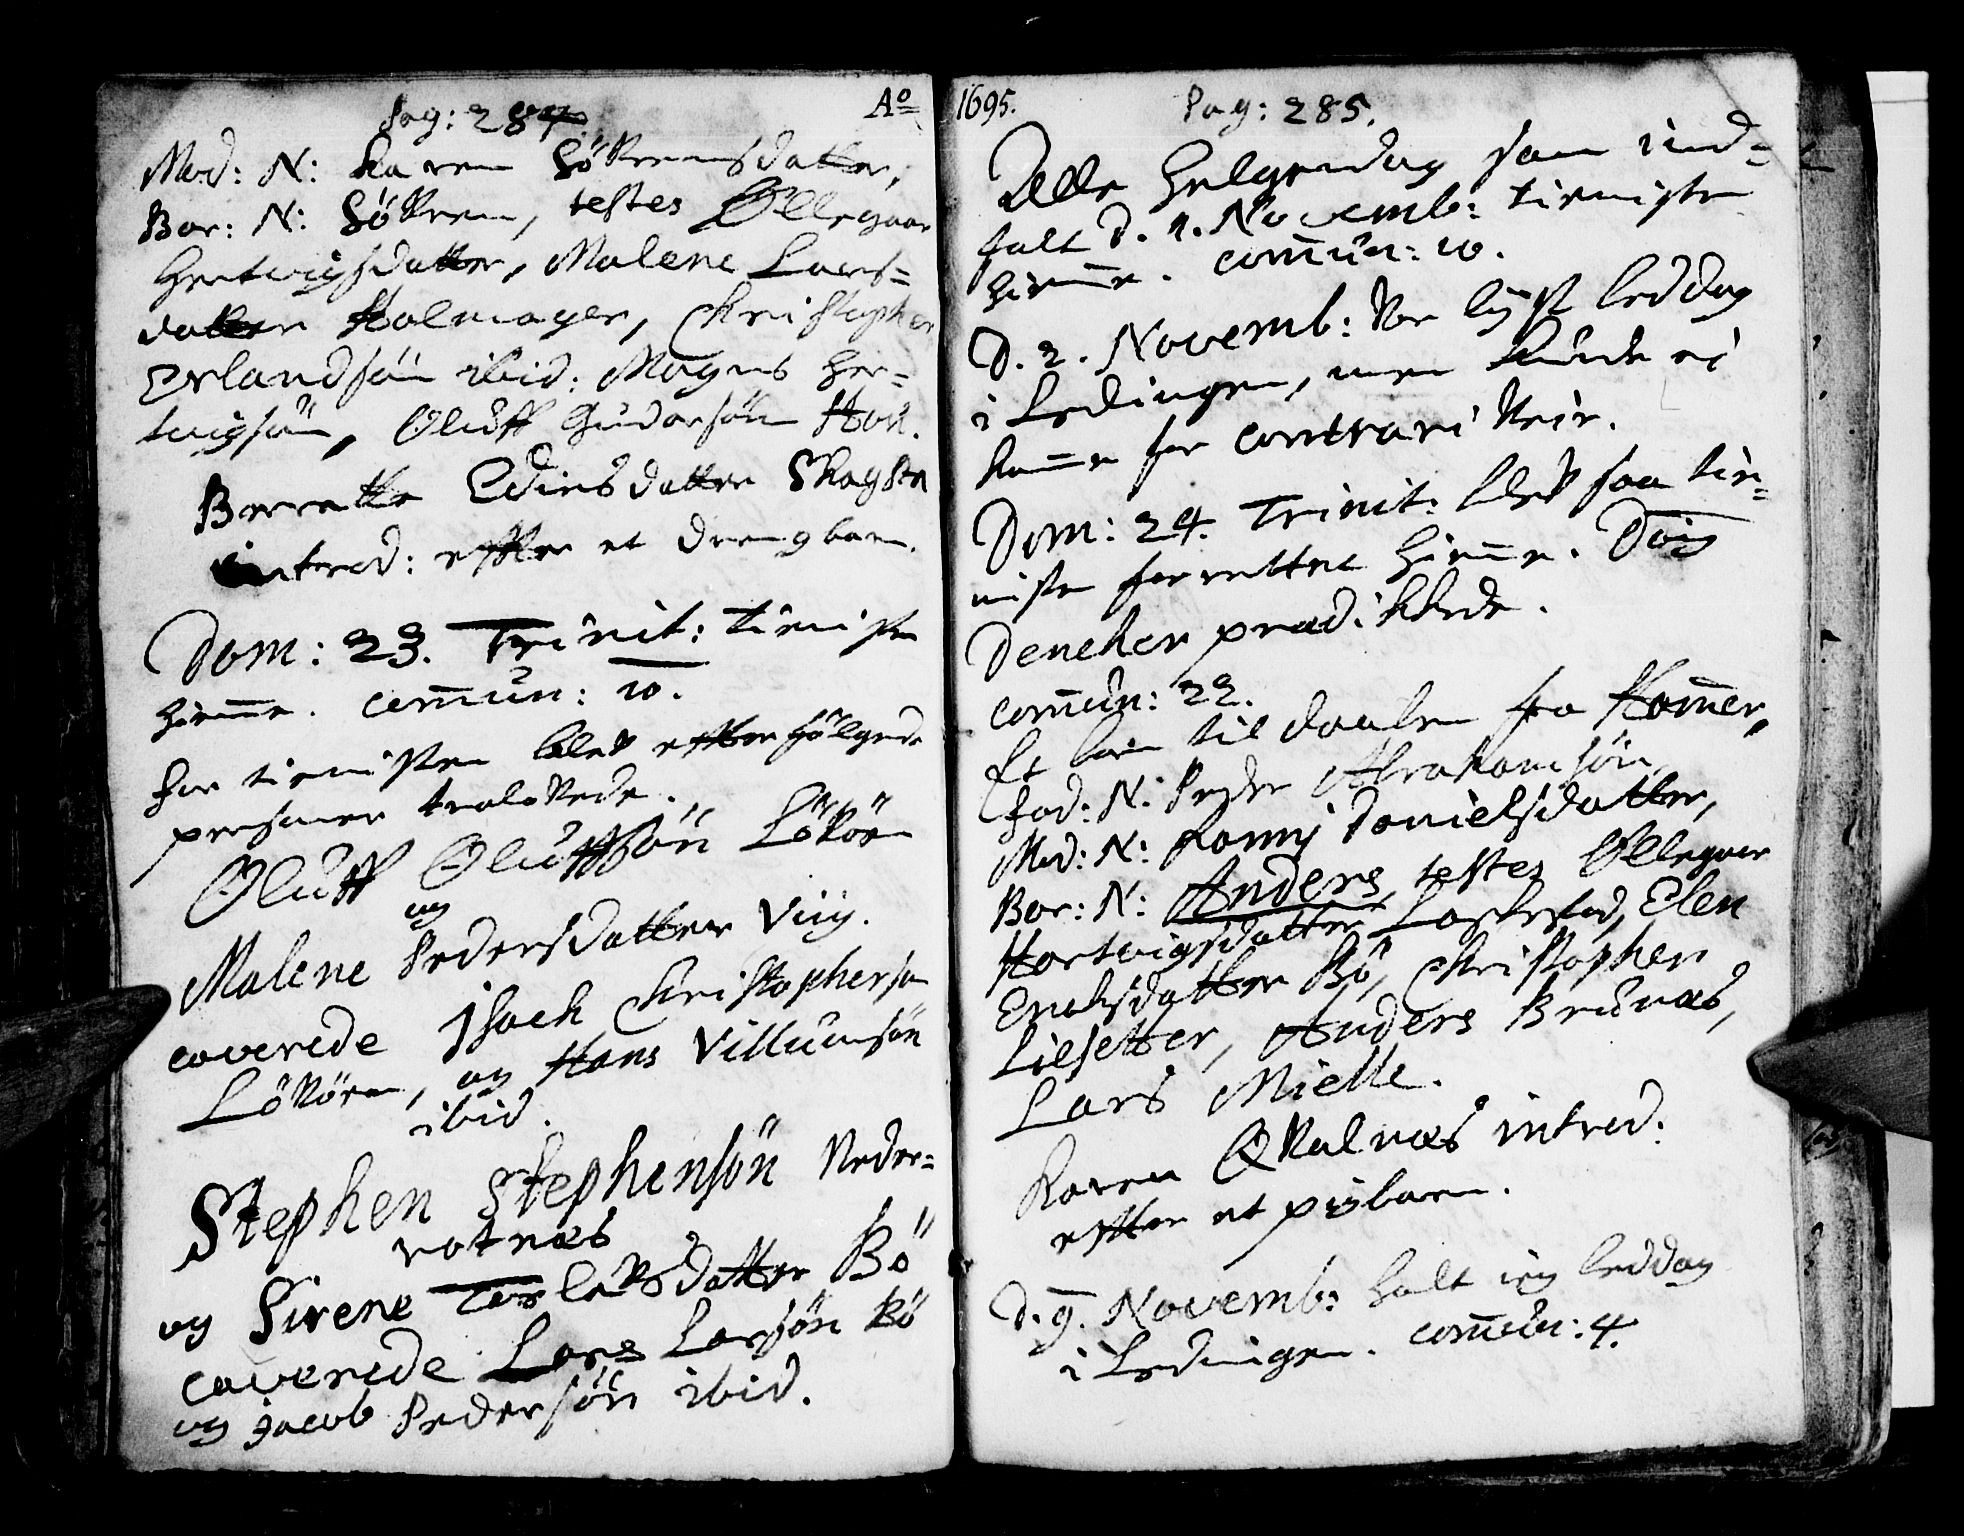 Pag: 284. Aº
Mod: N: Karen Sörrensdatter,
Bar: N: Sörren, testes Ollegaar
Hertvigsdatter, Malene Lars=
datter Holmager, Christopher
Erlandsön ibid: Mogens Her=
tvigsön, Oluff Gudarsön
Berrette datter
introd: effter et drengbarn.
Dom: 23. Trinit: tienisten
hieme. comun: 10.
for tienisten blef effterfölgende
personer trolofvede.
Oluff Oluffsön
og
Malene Pedersdatter Viig.
caverede Isach Christophersøn
og Hans Villumsön
ibid.
Stephen Stephensön Neder=
vatnæs
og Sirene datter Bö
caverede Lars Larsön Bö
og Jacob Pedersön ibid.
1695. Pag: 285.
Alle Helgendag som ind=
falt d. 1. Novemb: tienisten
hieme. comun: 10.
D. 2. Novemb: var lyst leddag
i Ledingen, men kunde ei
kome for contrari veir.
Dom: 24. Trinit: blef saa tie=
nisten forrettet hieme. Doig
Deneker prædikkede.
comun: 22.
Et barn til daaben fra Hamer,
Fad: N: Peder Abrahamsön
Mod: N: Danielsdatter,
Bar: N: Anders, testes Ollegaar
Hartvigsdatter Elen
Erichsdatter Bö, Christopher
Lilsetter, Anders Brunæs,
Lars Mielle.
Karen Qvalnæs introd:
effter et pigbarn.
D. 9. Novemb: halt ieg leddag
i Ledingen. comun: 4.